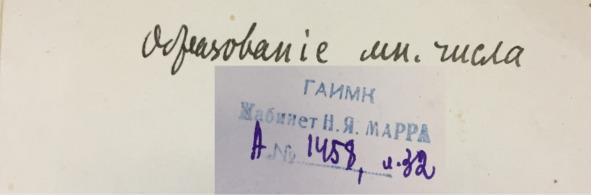 Образованіе мн. числа
ГАИМК
Кабинет Н.Я. МАРРА
А № 1458, л.32